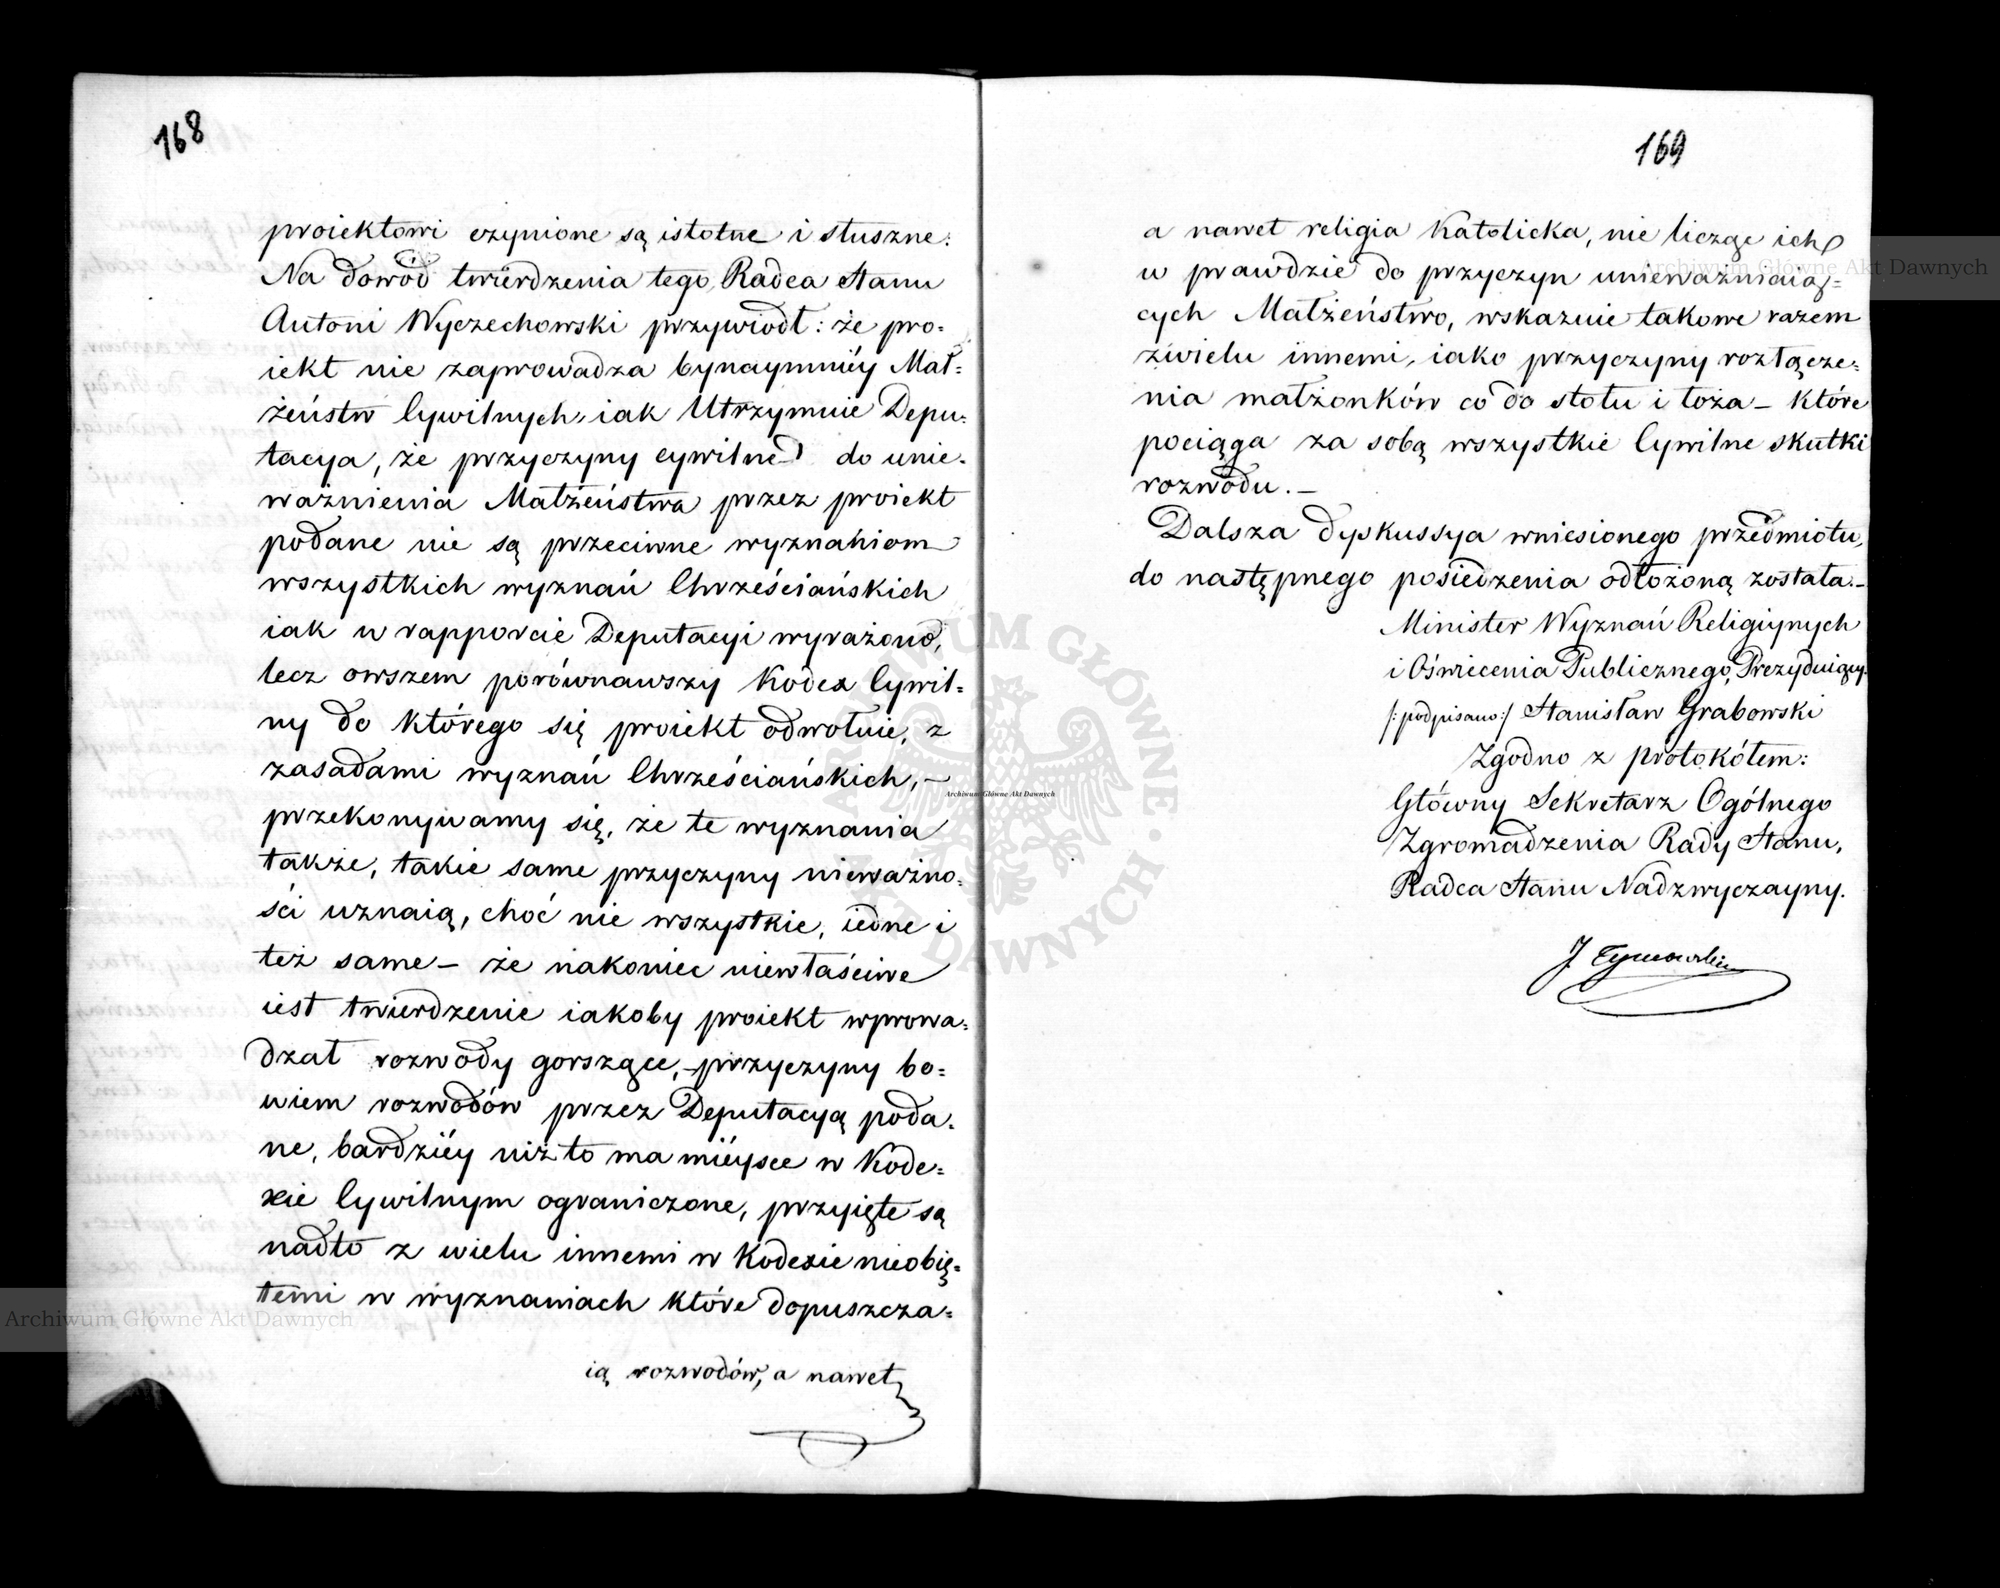 168
proiektowi czynione są istotne i słuszne.
Na dowód twierdzenia tego, Radca Stanu
Antoni Wyczechowski przywiódł: że pro=
iekt nie zaprowadza bynaymniéy Mał=
żeństw Cywilnych, iak Utrzymuie Depu=
tacya, że przyczyny cywilne do unie=
ważnienia Małżeństwa przez proiekt
podane nie są przeciwne wyznaniom
wszystkich wyznań Chrześciańskich
iak w rapporcie Deputacyi wyrażono,
lecz owszem porównawszy Kodex Cywil=
ny do którego się proiekt odwołuie, z
zasadami wyznań Chrześciańskich, –
przekonywamy się, że te wyznania
także, takie same przyczyny nieważno=
ści uznaią, choć nie wszystkie, iedne i
też same – że nakoniec niewłaściwe
iest twierdzenie iakoby proiekt wprowa=
dzał rozwody gorszące, – przyczyny bo=
wiem rozwodów przez Deputacyą poda=
ne, bardziéy niż to ma mieysce w Kode=
xie Cywilnym ograniczone, przyięte są
nadto z wielu innemi w Kodexie nieobię=
temi w wyznaniach które dopuszcza=
ią rozwodów, a nawet
169
a nawet religia Katolicka, nie licząc ich
w prawdzie do przyczyn unieważniaią=
cych Małżeństwo, wskazuie takowe razem
z wielu innemi, iako przyczyny rozłącze=
nia małżonków co do stołu i łoża – które
pociąga za sobą wszystkie Cywilne skutki
rozwodu. –
Dalsza dyskussya wniesionego przedmiotu,
do następnego posiedzenia odłożoną została. –
Minister Wyznań Religiynych
i Oświecenia Publicznego, Prezyduiący.
/: podpisano :/ Stanisław Grabowski
Zgodno z protokółem:
Główny Sekretarz Ogólnego
Zgromadzenia Rady Stanu,
Radca Stanu Nadzwyczayny.
J Tymowski
Archiwum Główne Akt Dawnych
Archiwum Główne Akt Dawnych
Archiwum Główne Akt Dawnych
ARCHIWUM GŁÓWNE AKT DAWNYCH